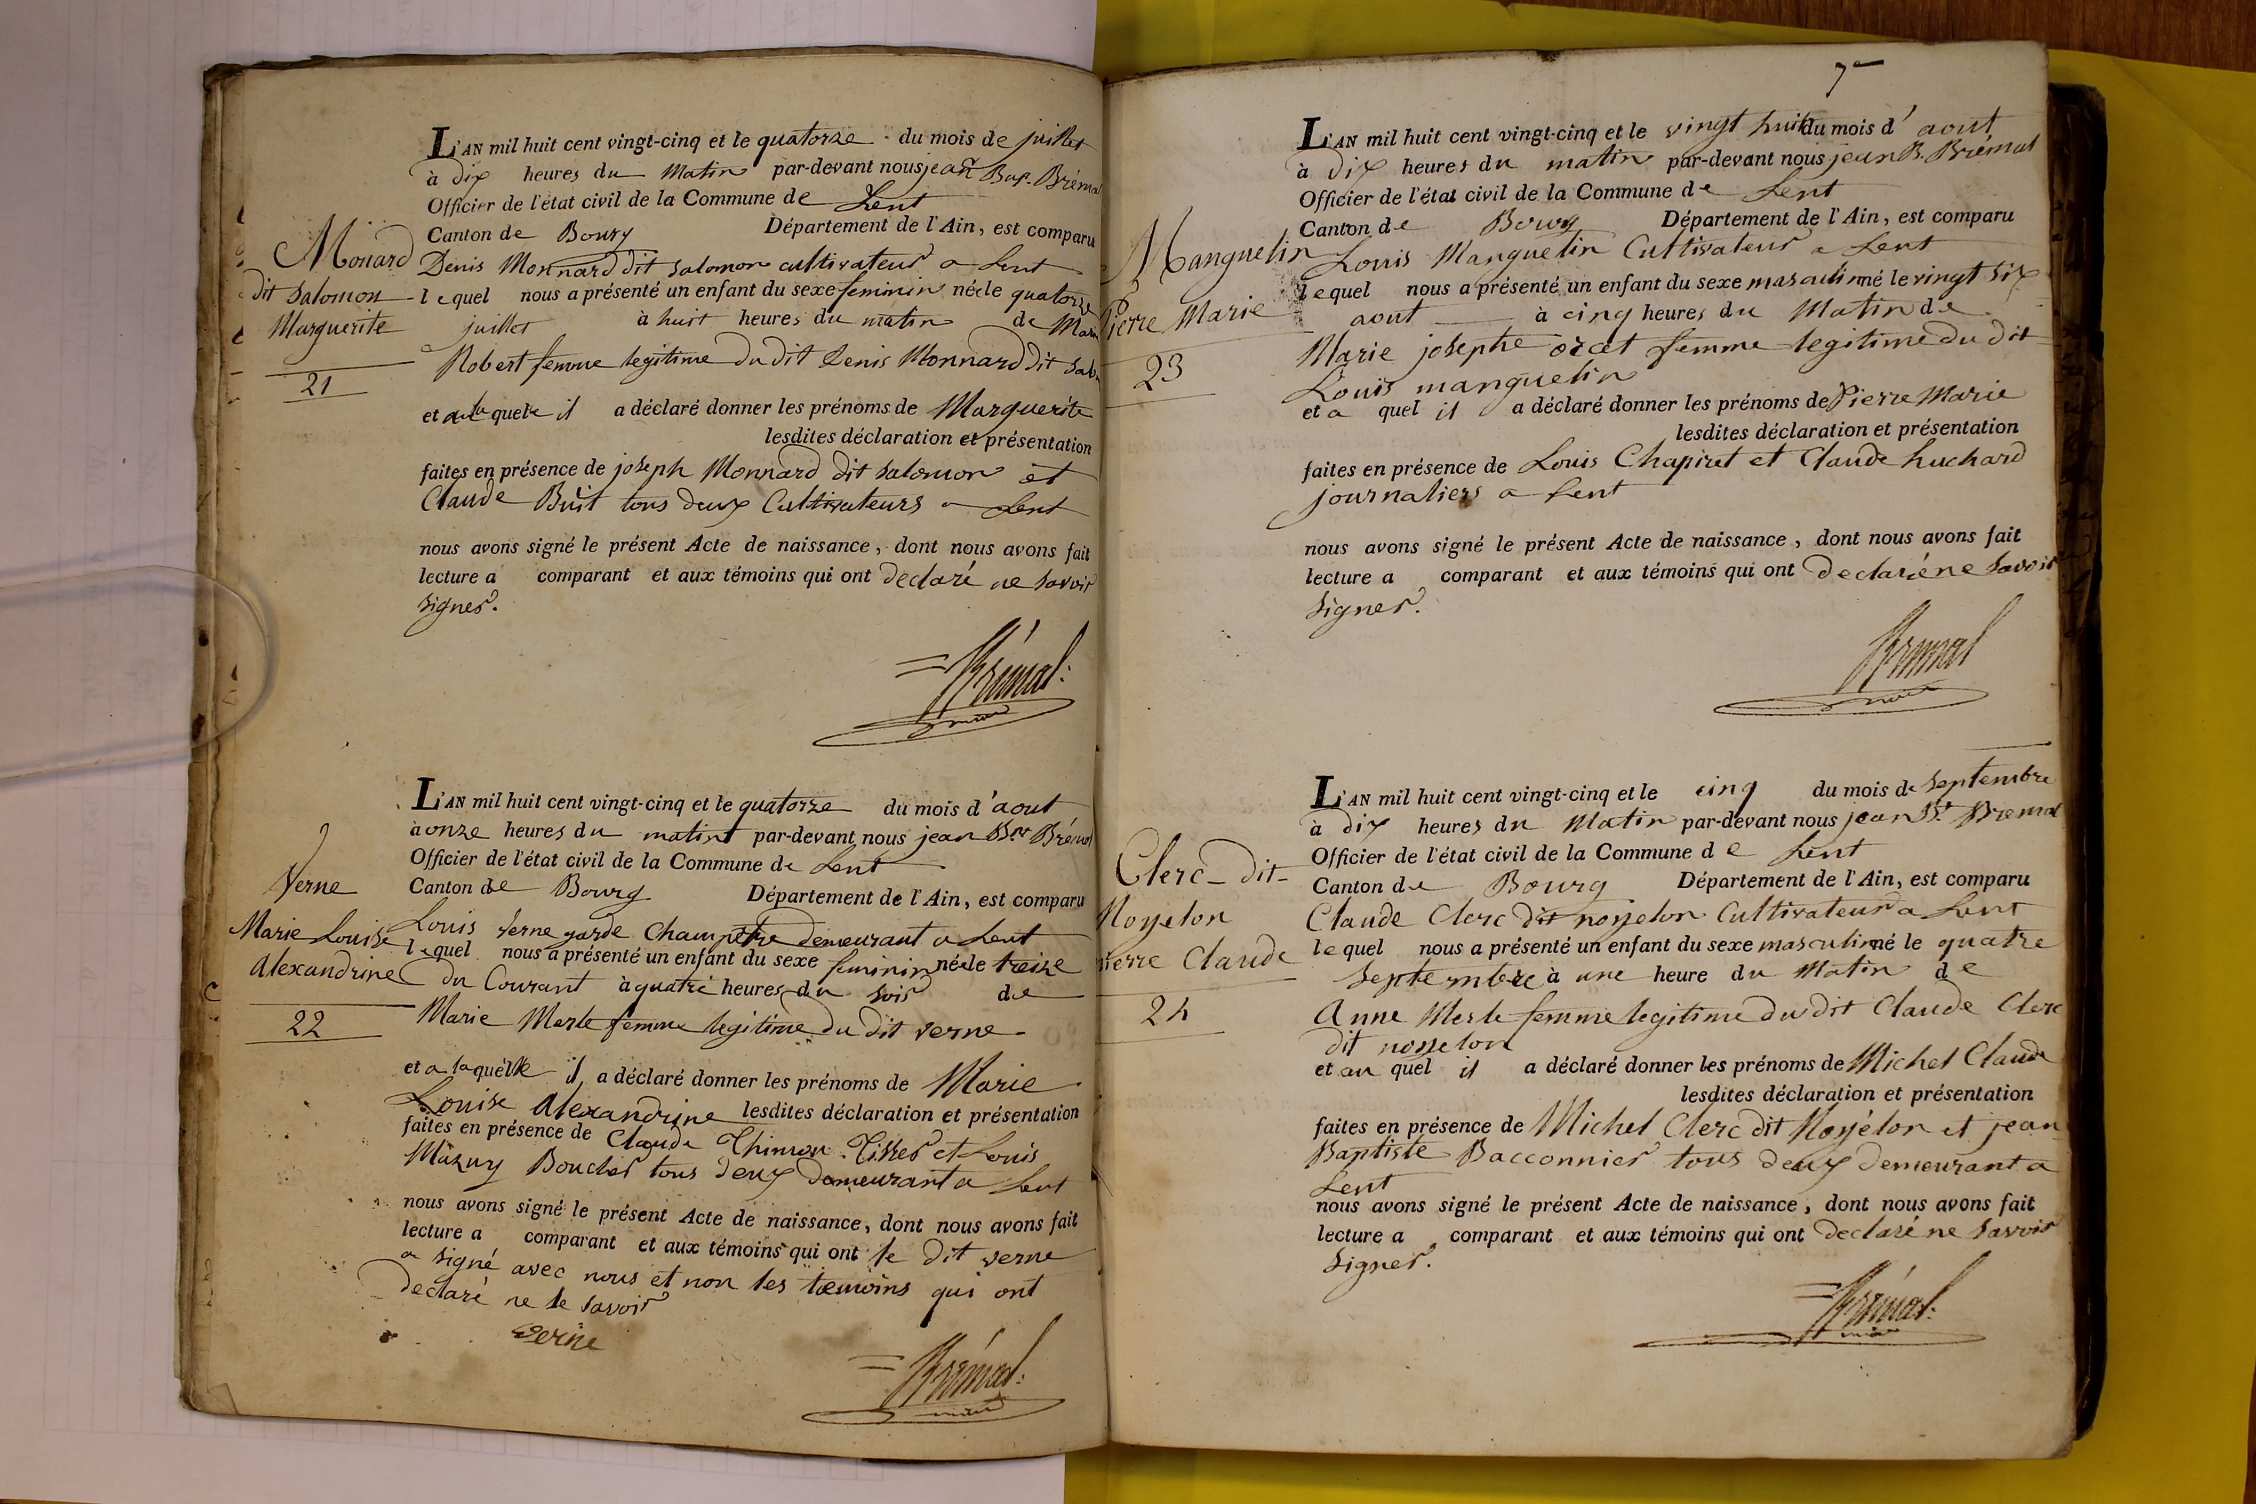 L'AN mil huit cent vingt-cinq et le quatorze du mois de juillet
à dix heures du matin par-devant nous jean Bap. Brémal
Officier de l'état civil de la Commune de Lent
Canton de Bourg Département de l'Ain, est comparu
Denis Monnard dit Salomon cultivateur a Lent
lequel nous a présenté un enfant du sexe feminin néele quatorze
juillet à huit heures du matin de Marie
Robert femme legitime du dit Denis Monnard dit Salo
et a la quele il a déclaré donner les prénoms de Marguerite
lesdites déclaration et présentation
faites en présence de joseph Monnard dit Salomon et
Claude Buit tous deux Cultivateurs a Lent
nous avons signé le présent Acte de naissance, dont nous avons fait
lecture a comparant et aux témoins qui ont declaré ne savoir
signer.
Brémal
maire
Monard
dit Salomon
Marguerite
21
L'AN mil huit cent vingt-cinq et le quatorze du mois d'aout
à onze heures du matin par-devant nous jean Bte Brémal
Officier de l'état civil de la Commune de Lent
Canton de Bourg Département de l'Ain, est comparu
Louis Verne garde Champetre demeurant a Lent
lequel nous a présenté un enfant du sexe feminin néele treize
du Courant à quatre heures du soir de
Marie Merle femme legitime du dit Verne
et a laquelle il a déclaré donner les prénoms de Marie
Louise Alexandrine lesdites déclaration et présentation
faites en présence de Claude Thimon Tisser et Louis
Mazuy Boucher tous deux demeurant a Lent
nous avons signé le présent Acte de naissance, dont nous avons fait
lecture a comparant et aux témoins qui ont le dit Verne
a signé avec nous et non les temoins qui ont
declaré ne le savoir
Verne
Brémal
maire
Verne
Marie Louise
Alexandrine
22
7e
L'AN mil huit cent vingt-cinq et le vingt huit du mois d'aout
à dix heures du matin par-devant nous jean B. Brémal
Officier de l'état civil de la Commune de Lent
Canton de Bourg Département de l'Ain, est comparu
Louis Manguelin Cultivateur a Lent
lequel nous a présenté un enfant du sexe masculin né le vingt six
aout à cinq heures du Matin de
Marie josephe ocat femme legitime du dit
Louis manguelin
et a quel il a déclaré donner les prénoms de Pierre Marie
lesdites déclaration et présentation
faites en présence de Louis Chapiret et Claude huchard
journaliers a Lent
nous avons signé le présent Acte de naissance, dont nous avons fait
lecture a comparant et aux témoins qui ont declaré ne savoir
signer.
Brémal
maire
Manguelin
Pierre Marie
23
L'AN mil huit cent vingt-cinq et le cinq du mois de septembre
à dix heures du Matin par-devant nous jean Bt. Bremal
Officier de l'état civil de la Commune de Lent
Canton de Bourg Département de l'Ain, est comparu
Claude Clerc dit noyelon Cultivateur a Lent
lequel nous a présenté un enfant du sexe masculin né le quatre
septembre à une heure du Matin de
Anne Merle femme legitime du dit Claude Clerc
dit noyelon
et au quel il a déclaré donner les prénoms de Michel Claude
lesdites déclaration et présentation
faites en présence de Michel Clerc dit Noyelon et jean
Baptiste Bacconnier tous deux demeurant a
Lent
nous avons signé le présent Acte de naissance, dont nous avons fait
lecture a comparant et aux témoins qui ont declaré ne savoir
signer.
Brémal
maire
Clerc dit
Noyelon
Pierre Claude
24